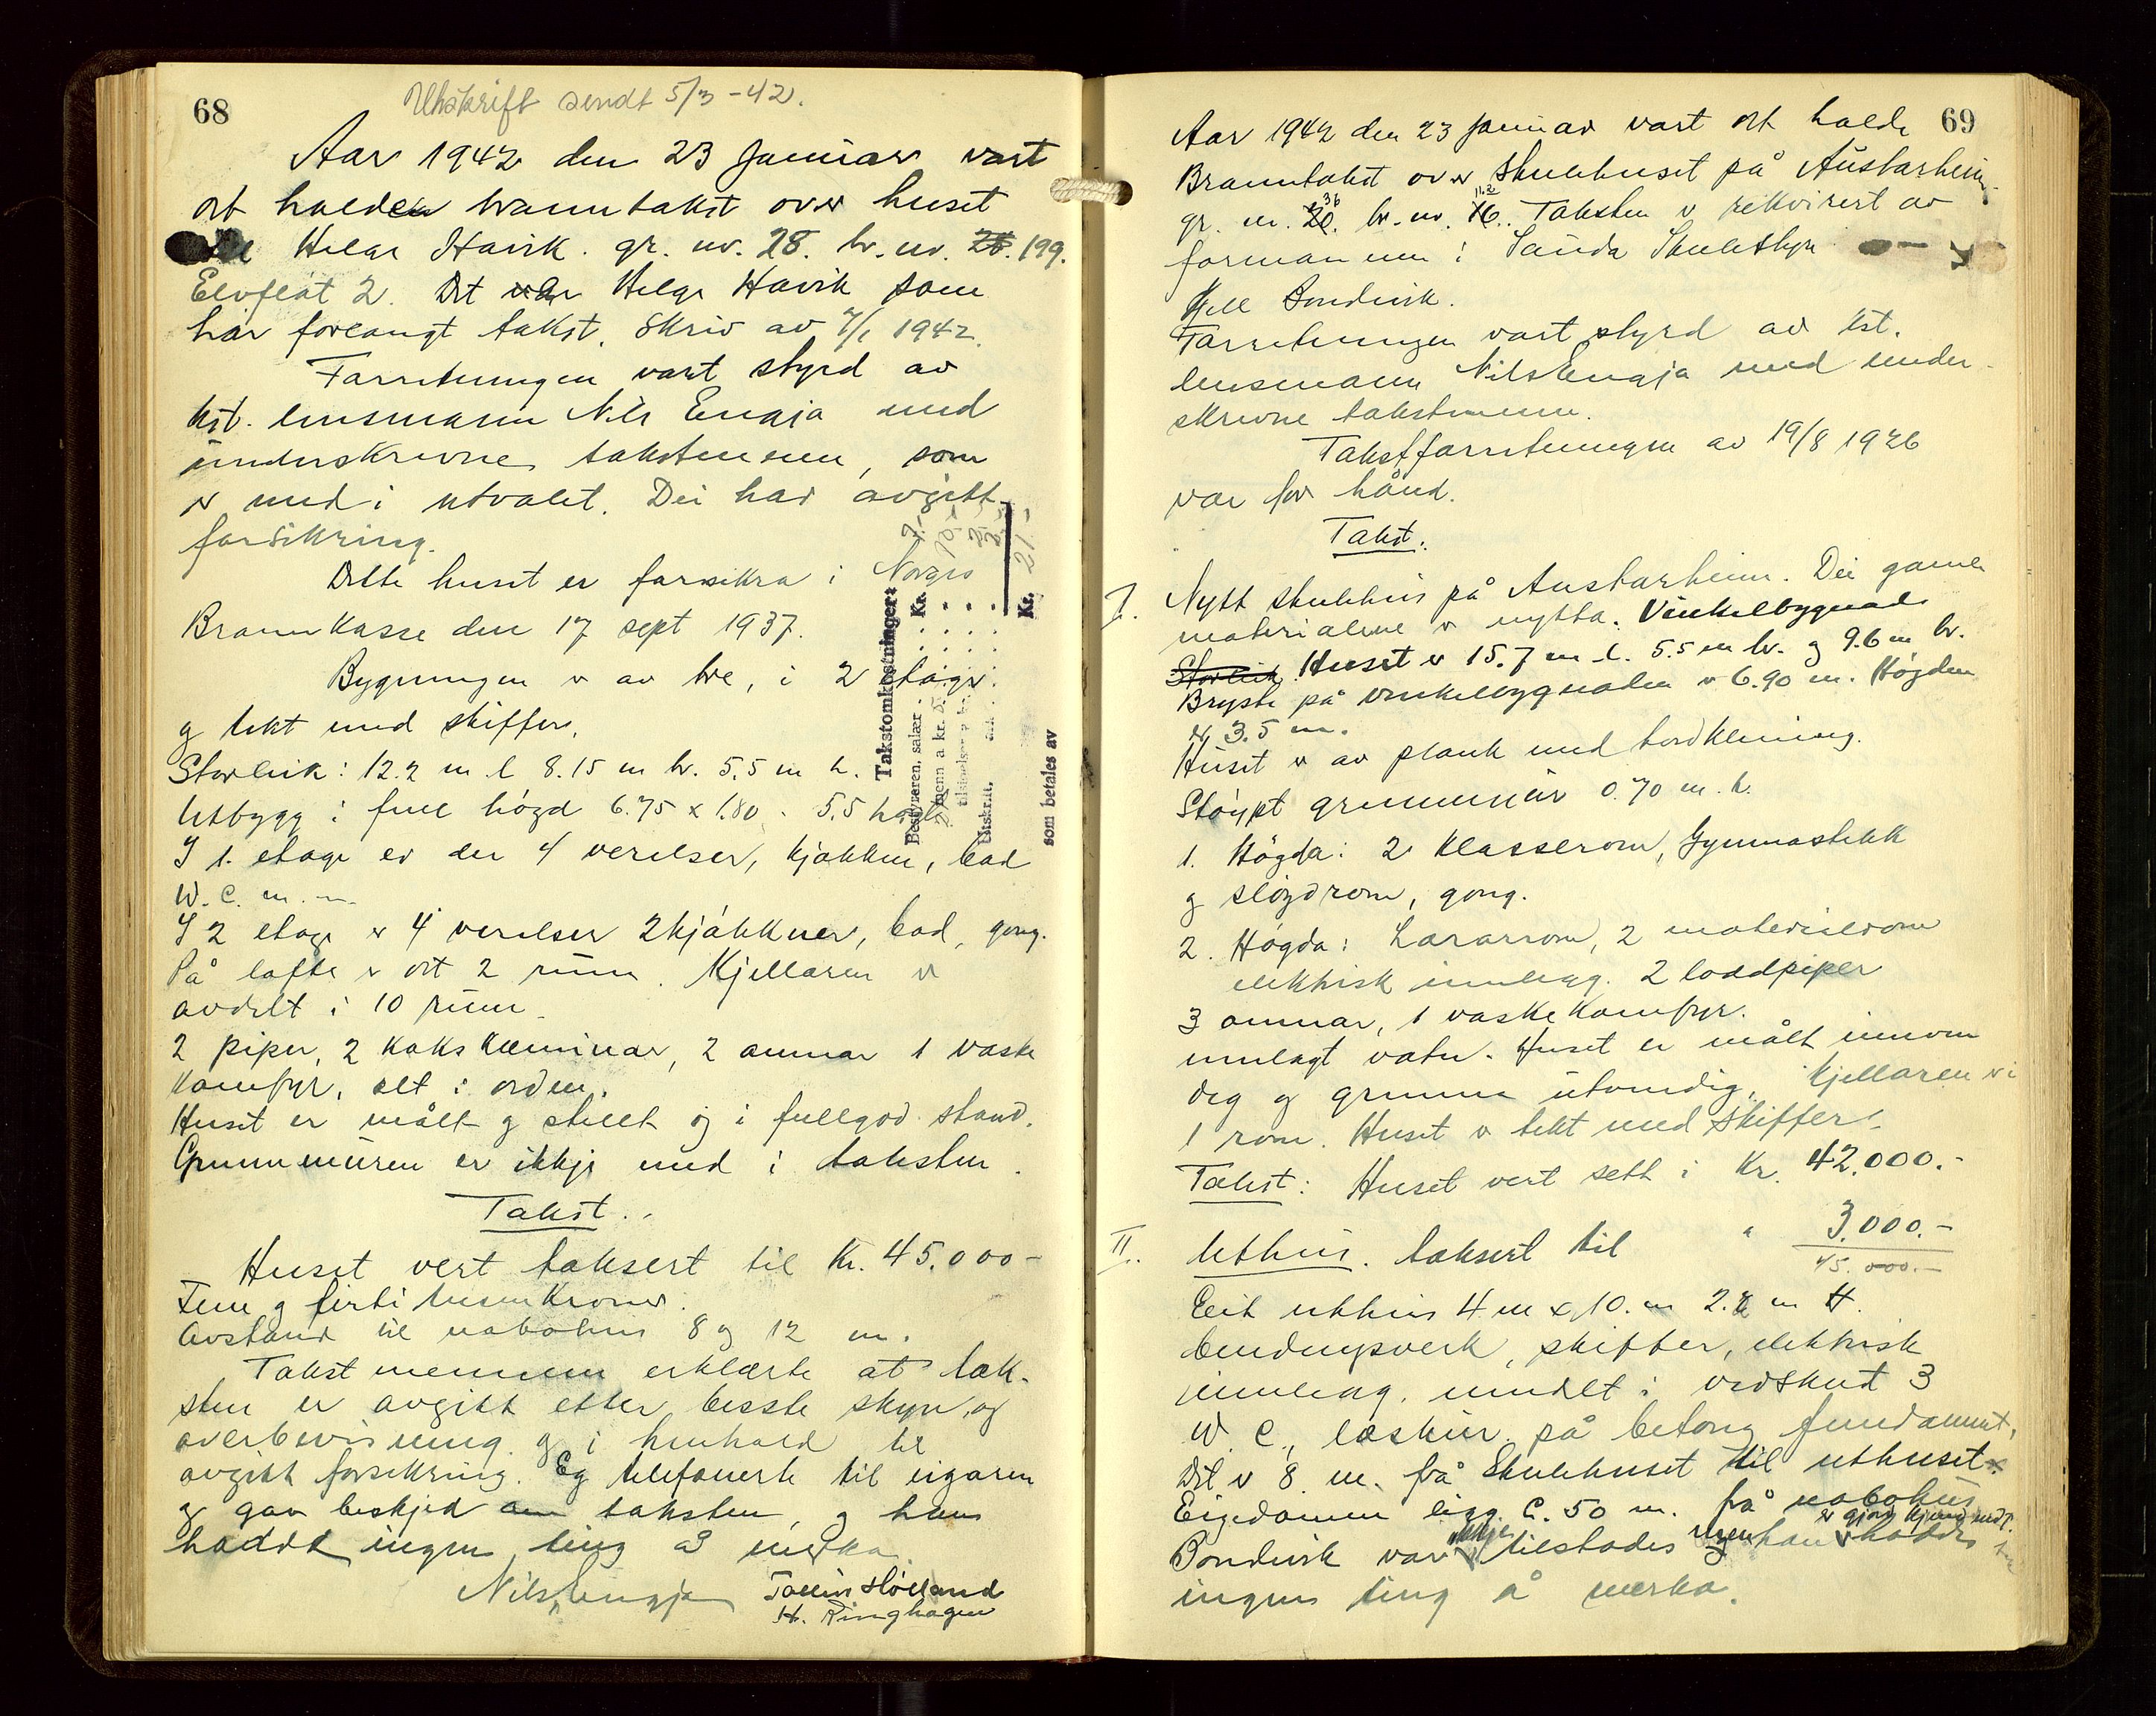 68
Utskrift sendt 5/3 -42.
Aar 1942 den 23 Januar vart
det halden branntakst over huset
Helge Havik. gr. nr. 28. br. nr. 199.
Elvflåt 2. Det var Helge Havik som
har forlangt takst. Skriv av 7/1 1942.
Forretningen vart styrd av
kst. lensmann Nils Lengja med
underskrivne takstmenn, som
er med i utvalet. Dei har avgitt
forsikring.
Dette huset er forsikra i Norges
Brannkasse den 17 sept 1937.
Bygningen er av tre, i 2 etager.
og tekt med skiffer.
Storleik: 12.2 m l 8.15 m br. 5.5 m h.
Utbygg i full høgd 6.75 x 1.80 - 5.5 høgd
I 1. etage er der 4 verelser, kjøkken, bad
W.C. m.m.
I 2 etage er 4 verelser 2 kjøkkner, bad, gong.
På lofte er det 2 rum. Kjellaren er
avdelt i 10 rum.
2 piper, 2 koks kaminar, 2 omnar 1 vaske
komfyr, alt i orden.
Huset er målt og stellt og i fullgod stand.
Grunnmuren er ikkje med i taksten.
Takst.
Huset vert taksert til Kr. 45.000-
Fem og førti tusen Kroner.
Avstand til nabohus 8 og 12 m.
Takstmennene erklærte at tak-
sten er avgitt etter beste skyn og
overbevisning og i henhold til
avgitt forsikring. Eg telefonerte til eigaren
og gav beskjed om taksten, og han
hadde ingen ting å merka.
Nils Lengja Tolleiv Høiland
H. Ringhagen
Takstomkostninger:
Bestyreren, salær . Kr. 7.-
2 menn a kr. 5. 10.-
Utskrift.
Kr. 21.-
som betales av
69
Aar 1942 den 23 januar vart det halde
Branntakst over Skulehuset på Austarheim
gr. nr. 36 br. nr. 11.2. Taksten er rekvirert av
formannen i Sauda Skulestyre
Kjell Bondevik.
Forretningen vart styrd av kst.
lensmann Nils Lengja med under-
skrivne takstmenn.
Takstforretningen av 19/8 1926
var for hånd.
Takst.
I. Nytt skulehus på Austarheim. Dei gamle
materialene er nytta. Vinkelbygnad
Storleik. Huset er 15.7 m l. 5.5 m br. og 9.6 m br.
Bryste på vinkelbygnaden er 6.90 m. Høgden
er 3.5 m.
Huset er av plank med bordkledning.
Støypt grunnmur 0.70 m. h.
1. Høgda: 2 Klasserom, Gymnastikk
og sløydrom, gong.
2. Høgda: Lærarrom, 2 materielrom
elektrisk innlegg. 2 loddpiper
3 omnar, 1 vaskekomfyr.
innlagt vatn. Huset er målt innven
deg og grunna utvendig. Kjellaren er i
1 rom. Huset er tekt med skiffer.
Takst: Huset vert sett i Kr. 42.000.-
II. Uthus. taksert til " 3.000.-
45.000.-
Eit uthus 4 m x 10. m 2.2 m H.
bendingsverk, skiffer, elektrisk
innlegg. inndelt i vedskut 3
W.C., leskur på betong fundament.
Det er 8 m. frå Skulehuset til uthuset.
Eigedomen ligg C. 50 m. frå nabohus
Bondevik var ikkje tilstades men han er gjord kjend med t. hadde
ingen ting å merka.